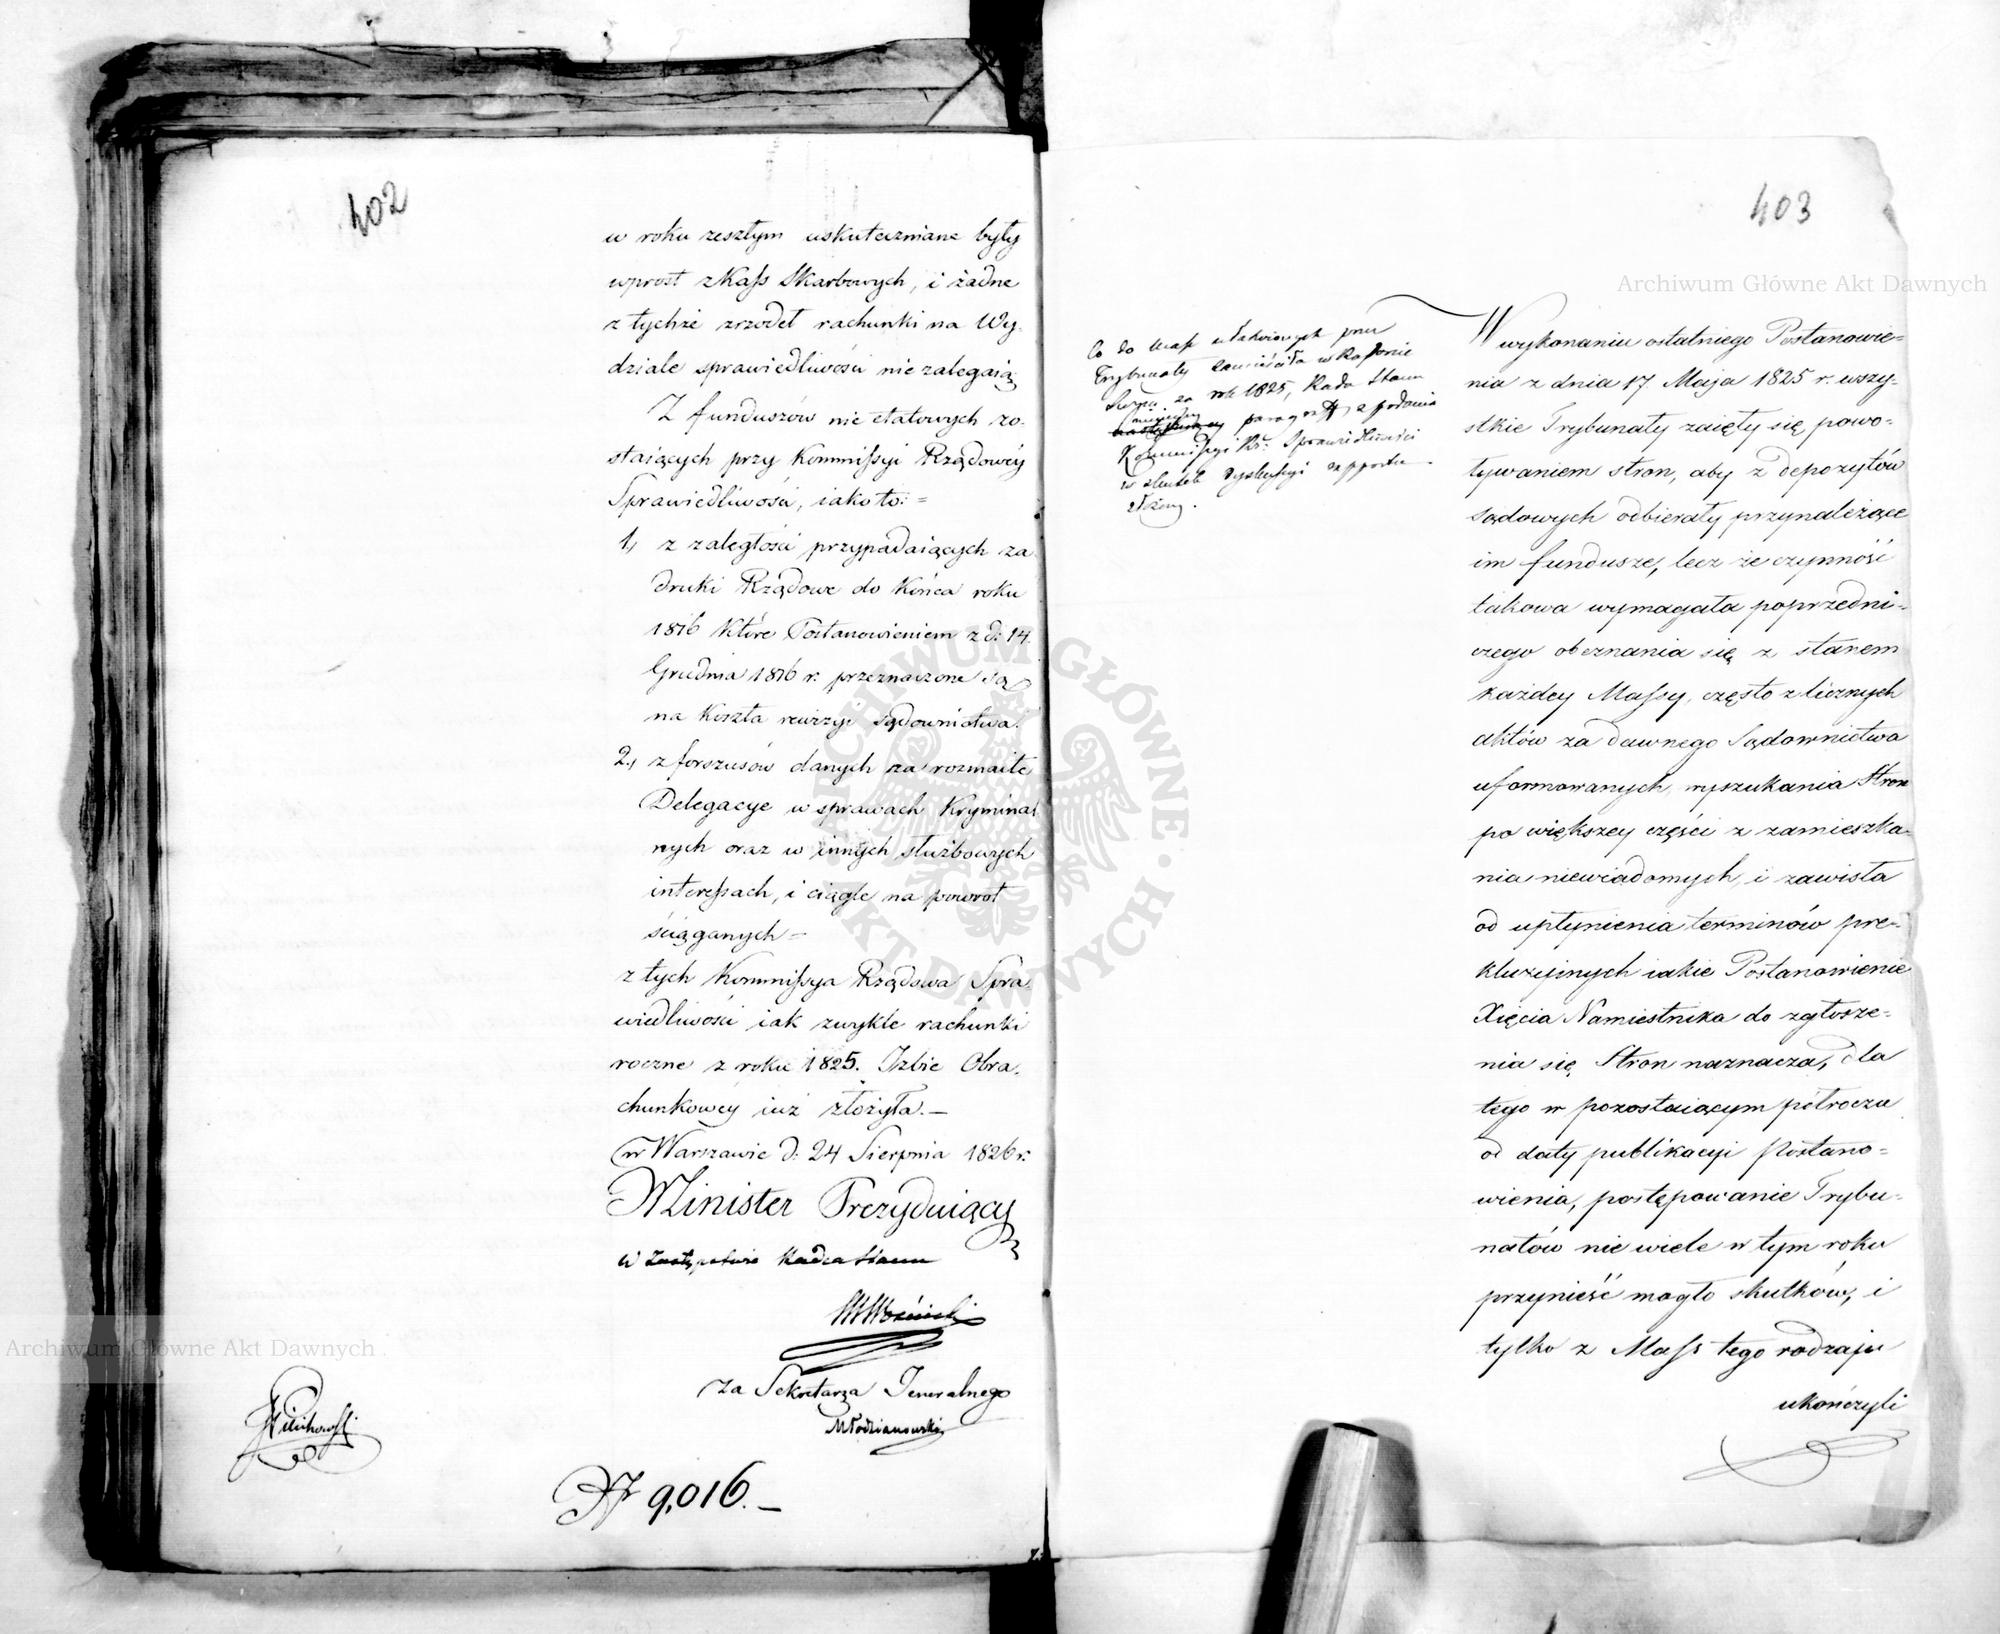 402
w roku zeszłym uskuteczniane były
wprost z Kass Skarbowych, i żadne
z tychże zrzodeł rachunki na Wy-
dziale sprawiedliwości nie zalegaią.
Z funduszów nie etatowych zo-
staiących przy Kommissyi Rządowey
Sprawiedliwości, iako to:=
1, z zaległości przypadaiących za
druki Rządowe do Końca roku
1816 Które Postanowieniem z d: 14.
Grudnia 1816 r. przeznaczone są
na koszta rewizyi sądownictwa.
2, z forszusów danych na rozmaite
Delegacye w sprawach Kryminal
nych oraz w innych służbowych
interessach, i ciągle na powrot
ściąganych=
z tych Kommissya Rządowa Spra-
wiedliwości iak zwykle rachunki
roczne z roku 1825. Izbie Obra-
chunkowey iuż złożyła.—
w Warszawie d. 24 Sierpnia 1826 r.
Minister Prezyduiący
w Zastępstwie Radca Stanu
Woźnicki
Za Sekretarza Jeneralnego
Młodzianowski
N 9,016.—
403
Co do mass ułatwionych przez
Trybunały zamieściła w Raporcie
swym za rok 1825, Rada Stanu
paragraff, z podania
Kommissyi Rz: Sprawiedliwości
w skutek dyskussyi rapportu
złożony.
W wykonaniu ostatniego Postanowie=
nia z dnia 17. Maja 1825 r. wszy-
stkie Trybunały zaięły się powo-
ływaniem stron, aby z depozytów
sądowych odbierały przynależące
im fundusze, lecz że czynność
takowa wymagała poprzedni-
czego obeznania się z stanem
każdey Massy, często z licznych
aktów za dawnego Sądownictwa
uformowanych, wyszukania Stron
po większey części z zamieszka-
nia niewiadomych, i zawisła
od upłynienia terminów pre-
kluzyinych iakie Postanowienie
Xięcia Namiestnika do zgłosze-
nia się Stron naznacza, dla
tego w pozostaiącym półroczu
od daty publikacyi Postano=
wienia, postępowanie Trybu-
nałów nie wiele w tym roku
przynieść mogło skutków, i
tylko z Mass tego rodzaju
ukończyli
Archiwum Główne Akt Dawnych
Archiwum Główne Akt Dawnych
ARCHIWUM GŁÓWNE · AKT DAWNYCH ·